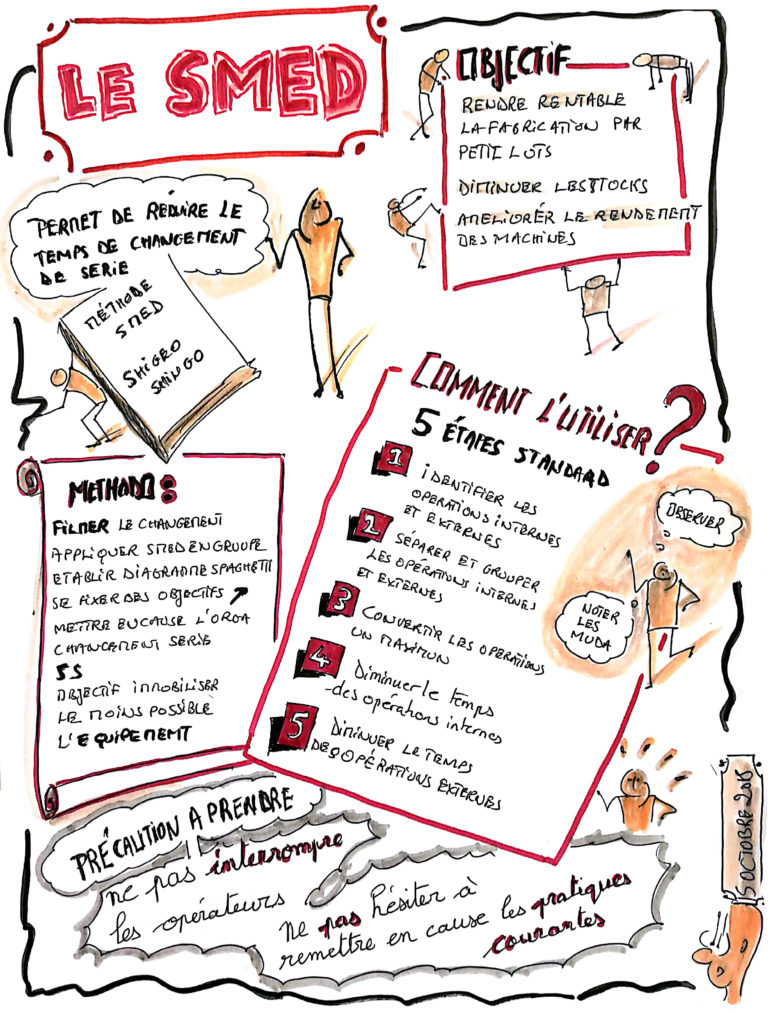 LE SMED
PERMET DE RÉDUIRE LE
TEMPS DE CHANGEMENT
DE SERIE
MÉTHODE
SMED
SHIGEO
SHINGO
OBJECTIF
RENDRE RENTABLE
LA FABRICATION PAR
PETIT LOTS
DIMINUER LES STOCKS
AMELIORER LE RENDEMENT
DES MACHINES
COMMENT L'UTILISER ?
5 ÉTAPES STANDARD
1
IDENTIFIER LES
OPERATIONS INTERNES
ET EXTERNES
2
SÉPARER ET GROUPER
LES OPÉRATIONS INTERNES
ET EXTERNES
3
CONVERTIR LES OPERATIONS
UN MAXIMUN
4
Diminuer le temps
des opérations internes
5
DIMINUER LE TEMPS
DES OPÉRATIONS EXTERNES
OBSERVER
NOTER
LES
MUDA
METHODO :
FILMER LE CHANGEMENT
APPLIQUER SMED EN GROUPE
ETABLIR DIAGRAMME SPAGHETTI
SE FIXER DES OBJECTIFS ↗
METTRE EN CAUSE L'ORGA
CHANGEMENT SERIE
5S
OBJECTIF IMMOBILISER
LE MOINS POSSIBLE
L'EQUIPEMENT
PRÉCAUTION A PRENDRE
ne pas interrompre
les opérateurs
ne pas hésiter à
remettre en cause les pratiques
courantes
5 OCTOBRE 2015